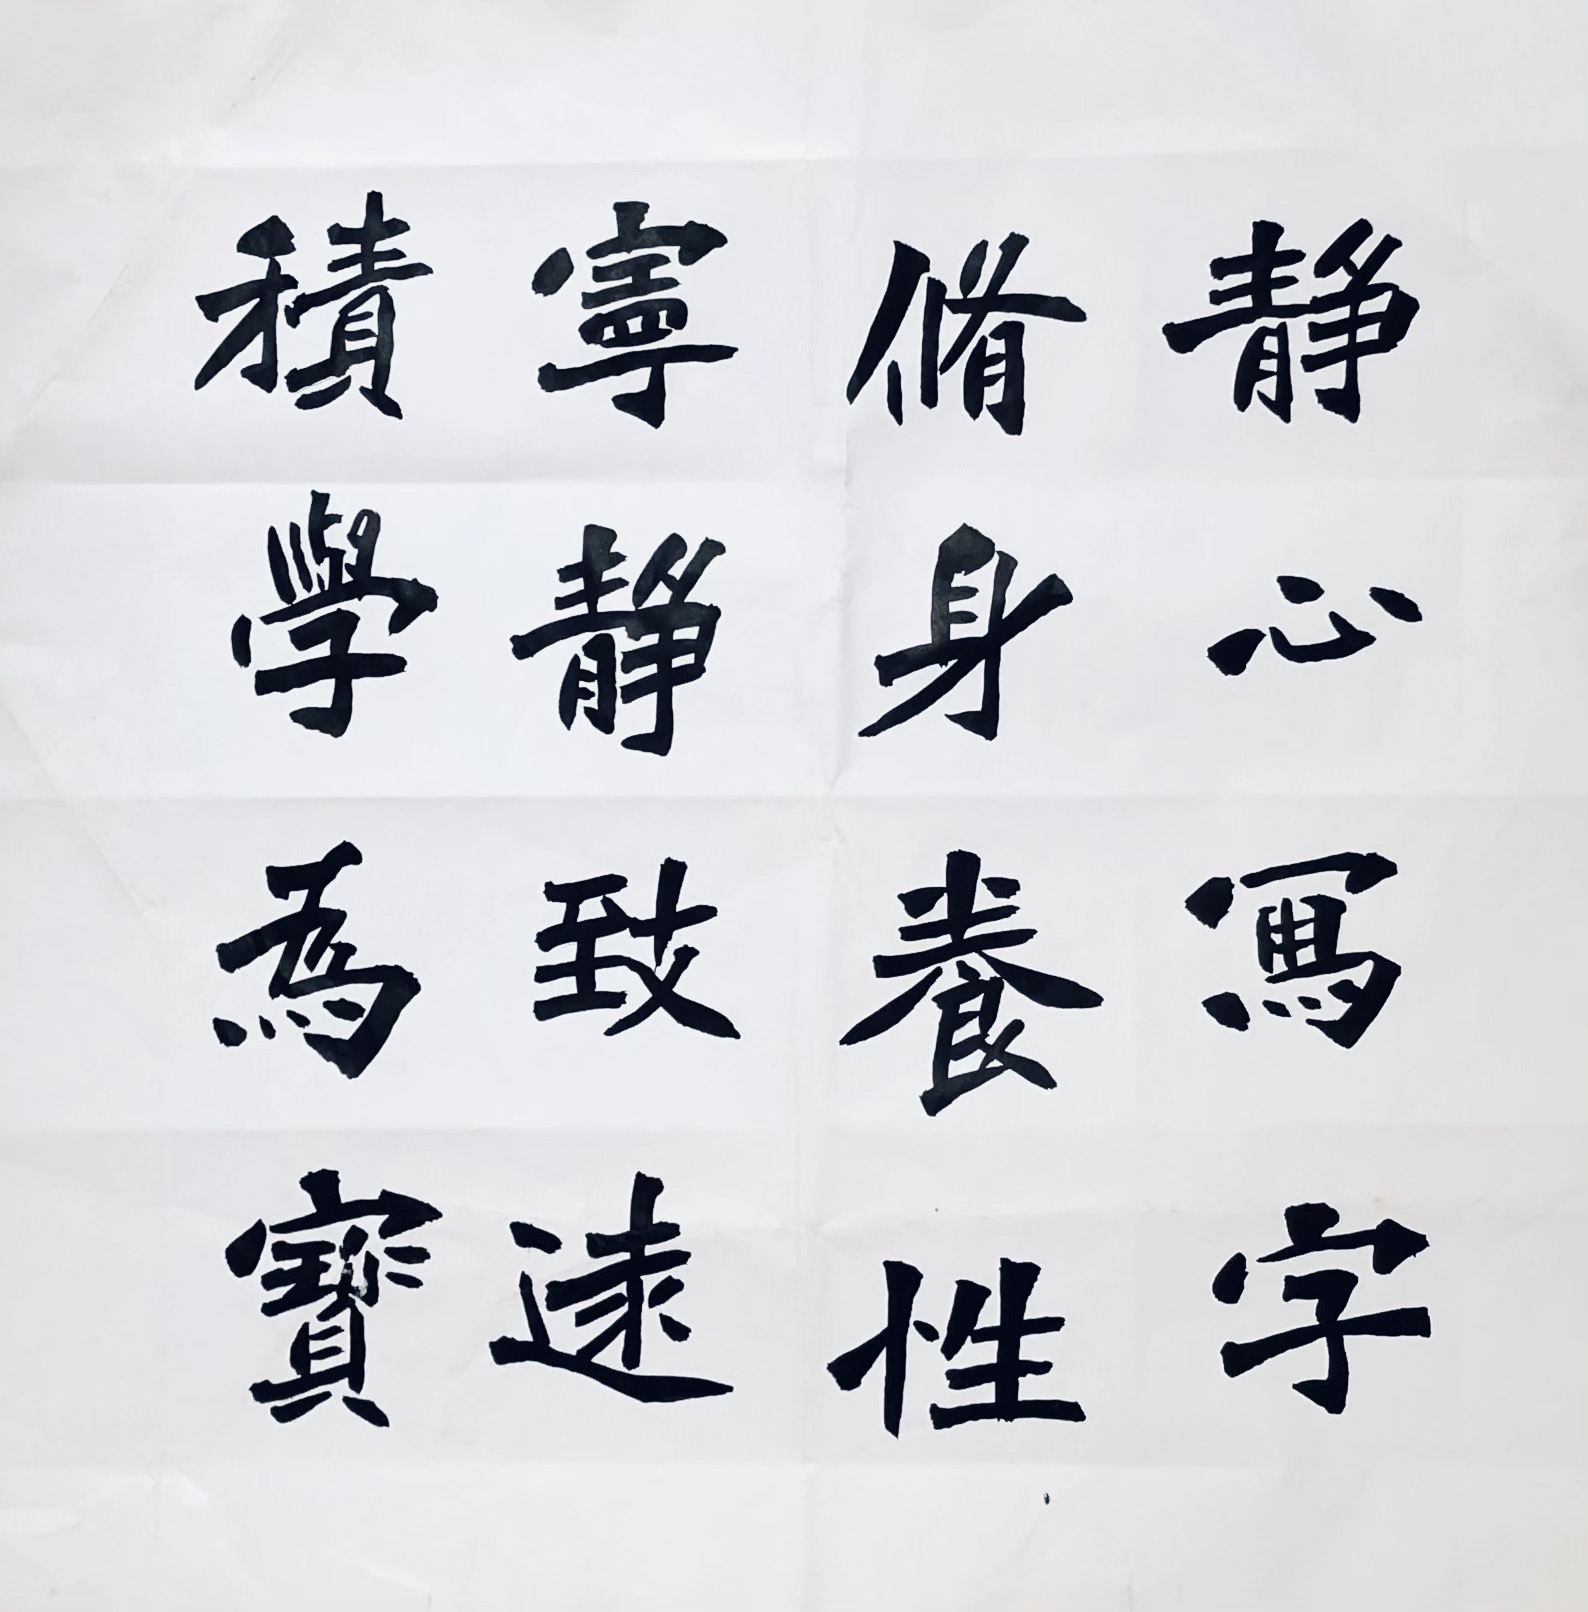 静心寫字
脩身養性
寧静致遠
積學為寶